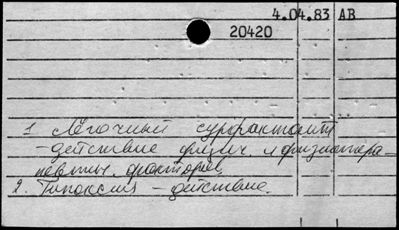 4.04.83 АВ
20420
1. Лёгочный сурфактант
- действие физич. и физиотера-
певтич. факторов
2. Гипоксия - действие.